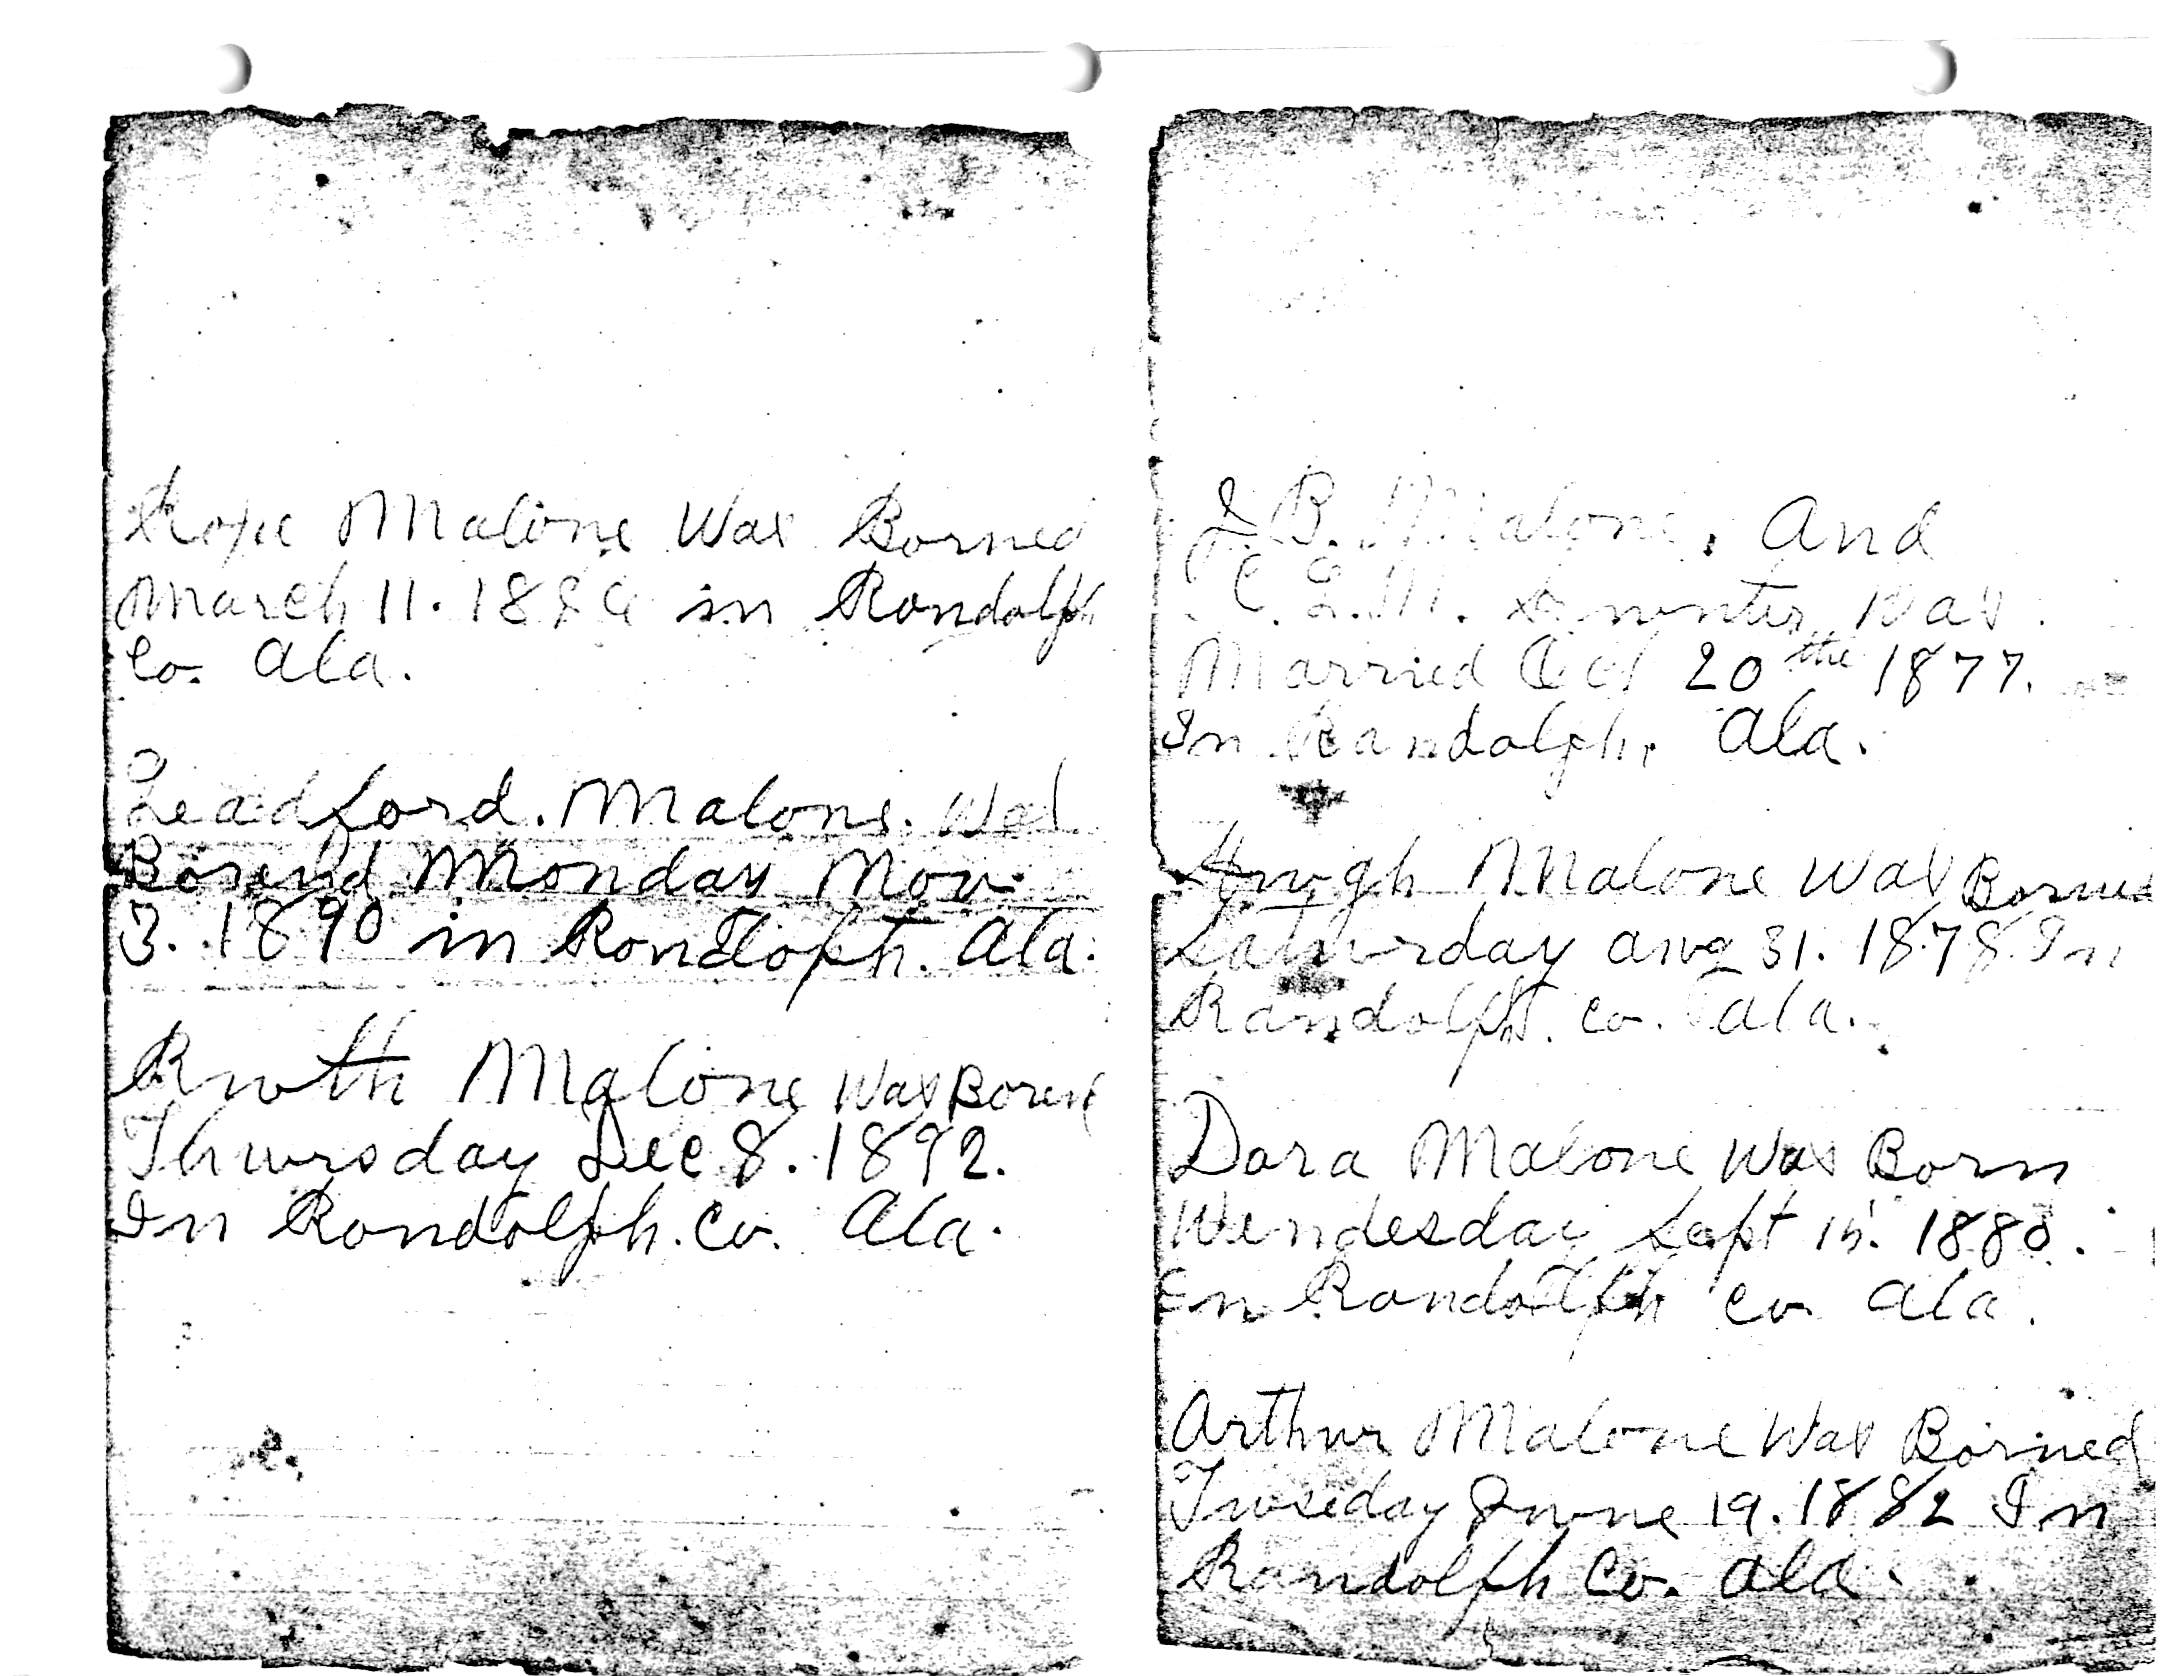 Malone Was Borned
March 11. 18 in Randolph
Co. Ala.
Leadford. Malone. Was
Borend Monday Nov.
3. 1890 in Rondolph. Ala.
Ruth Malone Was Boren
Thursday Dec 8. 1892.
In Rondolph. Co. Ala.
J. B. Malone. And
L. M. Was
Married Oct 20the 1877.
In Randolph, Ala.
Hugh Malone Was Borned
Saturday aug 31. 1878. In
Randolph. Co. Ala.
Dora Malone Was Born
Wendesday Sept 15. 1880.
In Randolph Co Ala.
Arthur Malone Was Borned
Tuseday June 19. 1882 In
Randolph Co. Ala.